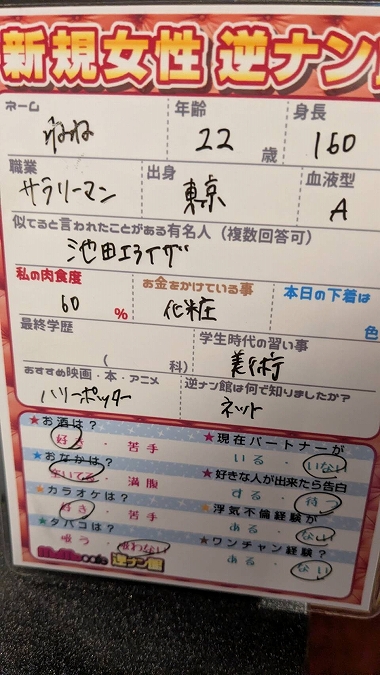 新規女性 逆ナン館
ネーム 年齢 身長
ねね 22 歳 160
職業 出身 血液型
サラリーマン 東京 A
似てると言われたことがある有名人(複数回答可)
池田エライザ
私の肉食度 お金をかけている事 本日の下着は
60 % 化粧 色
最終学歴 学生時代の習い事
( 科) 美術
おすすめ映画・本・アニメ 逆ナン館は何で知りましたか?
ハリーポッター ネット
★お酒は? ★現在パートナーが
好き・苦手 いる・いない
★おなかは? ★好きな人が出来たら告白
空いてる・満腹 する・待つ
★カラオケは? ★浮気不倫経験が
好き・苦手 ある・ない
★タバコは? ★ワンチャン経験?
吸う・吸わない ある・ない
cafe 逆ナン館